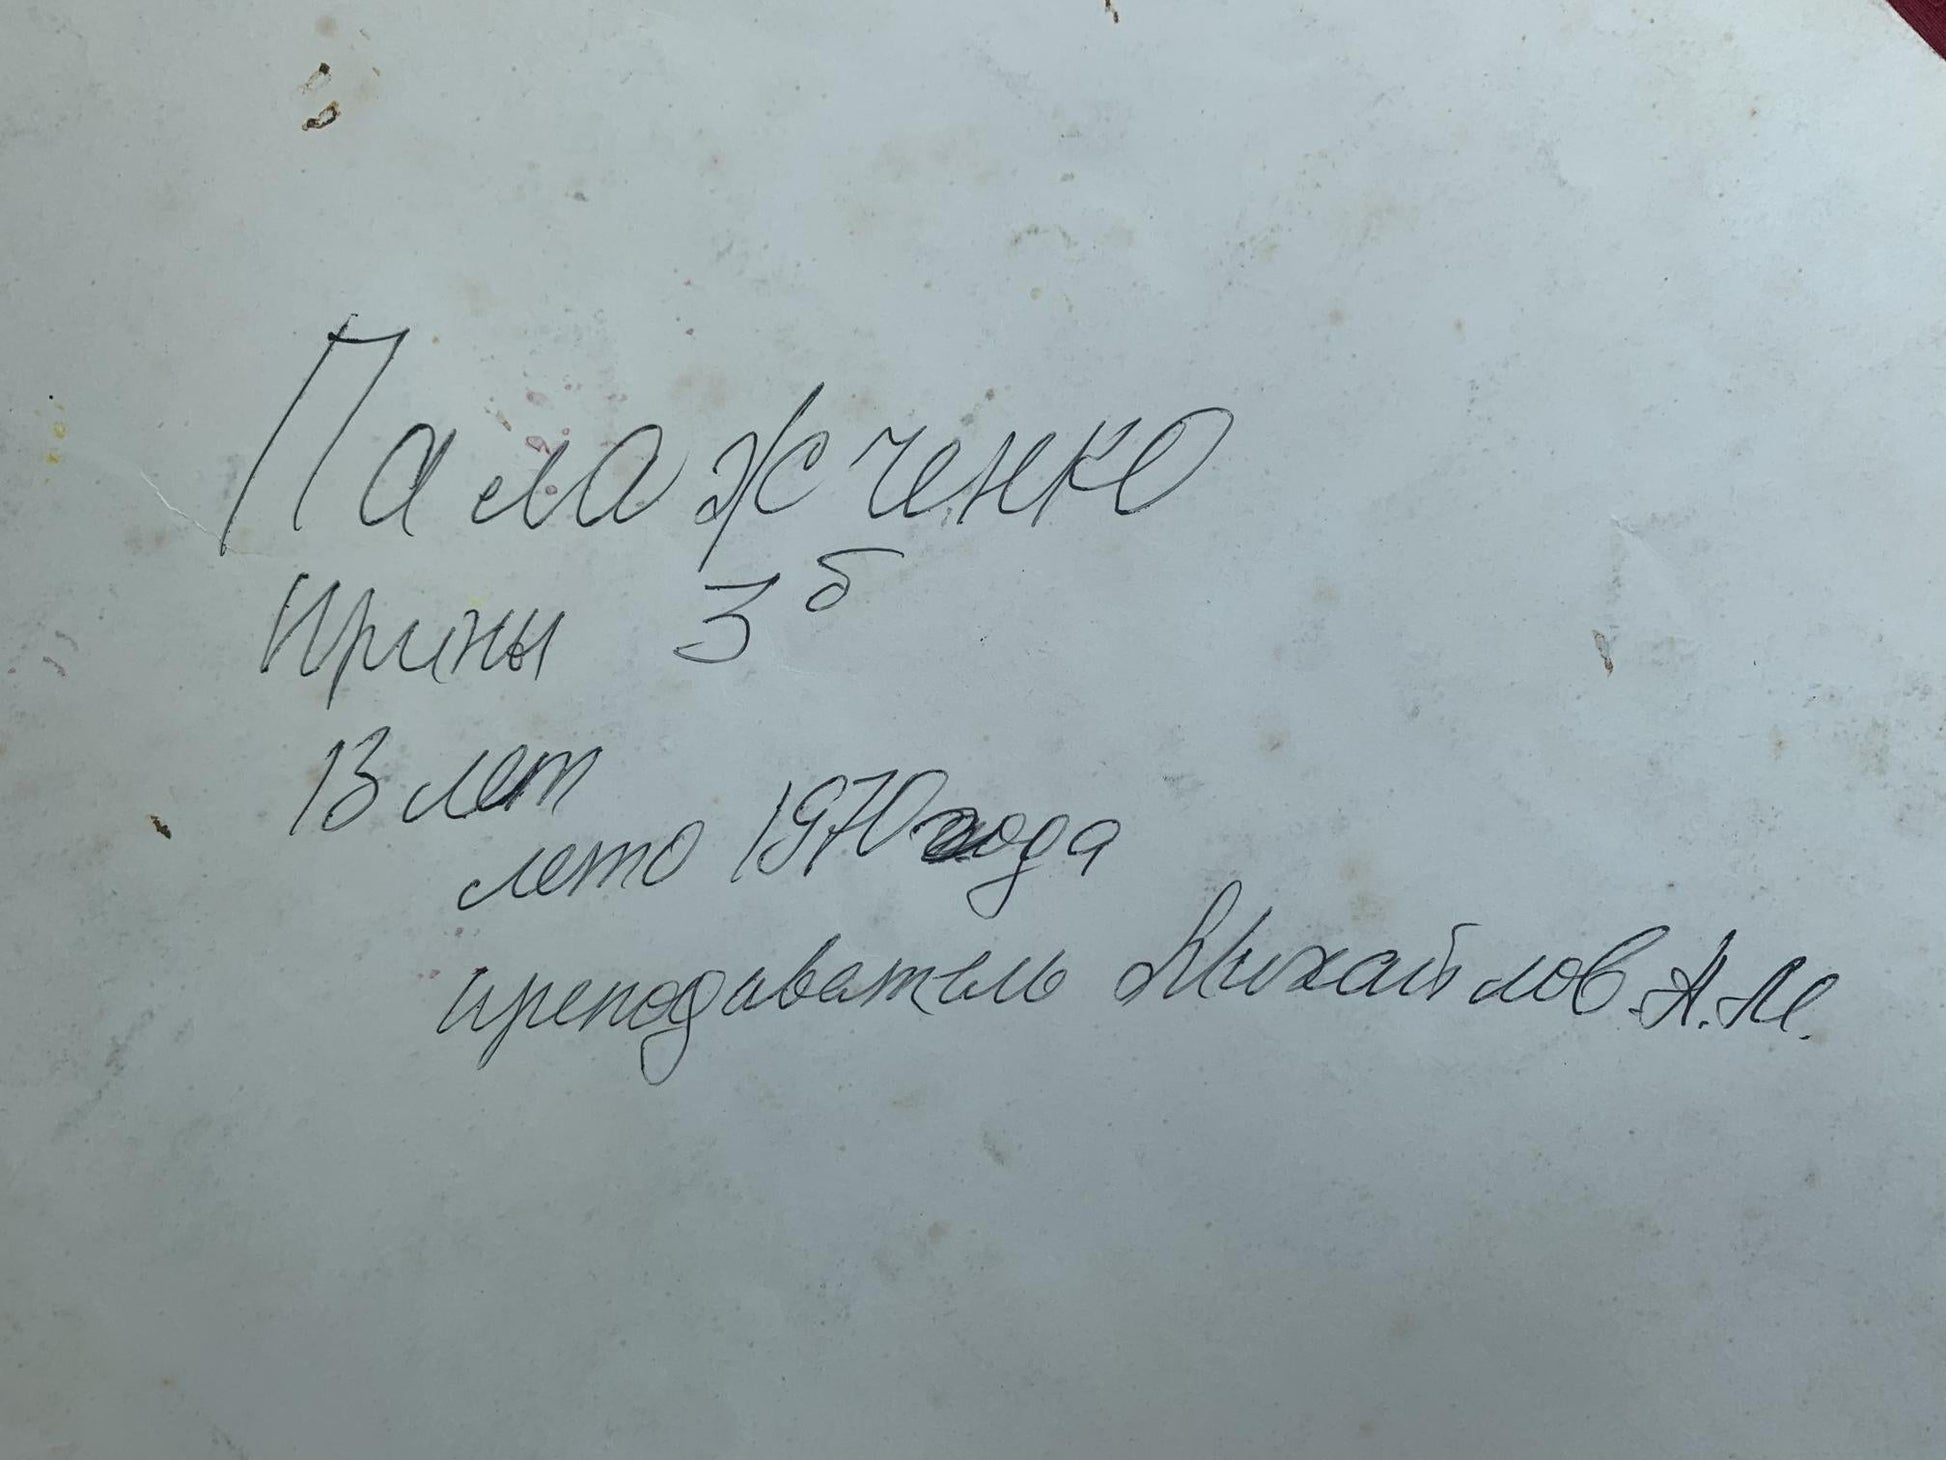 Палажченко
Ирины 3 б
13 лет
лето 1970 года
преподаватель Михайлов А.М.